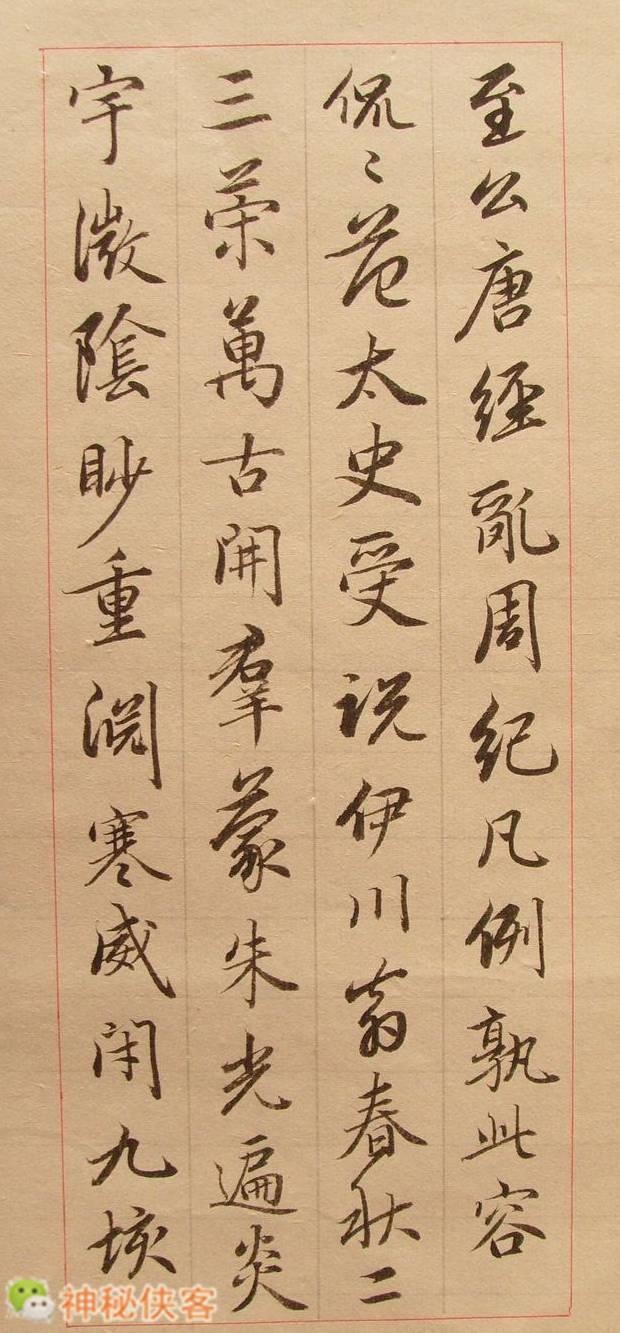 至公唐經亂周紀凡例孰此容
侃〻范太史受説伊川翁春秋二
三策萬古開羣蒙朱光遍炎
宇微陰眇重淵寒威閉九垓
神秘侠客